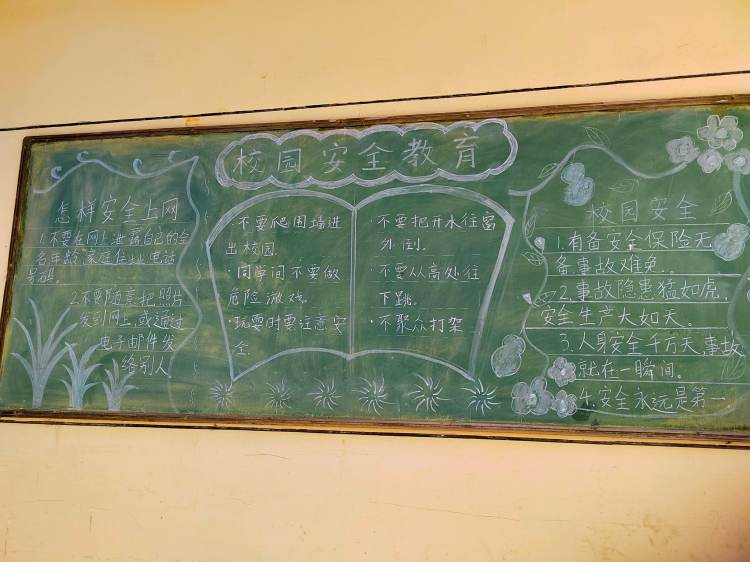 校园安全教育
怎样安全上网
1.不要在网上泄露自己的全
名年龄家庭住址电话
号码.
2.不要随意把照片
发到网上,或通过
电子邮件发
给别人
·不要爬围墙进
出校园.
·同学间不要做
危险游戏.
·玩耍时要注意安
全.
·不要把开水往窗
外倒.
·不要从高处往
下跳.
·不聚众打架
校园安全
1.有备安全保险无
备事故难免.
2.事故隐患猛如虎,
安全生产大如天.
3.人身安全千万天事故
就在一瞬间.
4.安全永远是第一